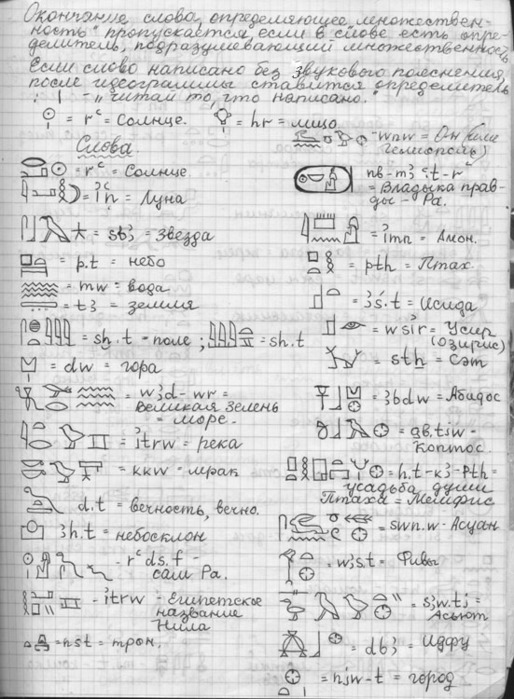 Окончание слова, определяющее множествен-
ность пропускается, если в слове есть опре-
делитель, подразумевающий множественность
Если слово написано без звукового пояснения,
после идеограммы ставится определитель
"читай то, что написано."
= rˁ = солнце. = hr = лицо
Слова
= rˁ = Солнце
= i͗ʿḥ = Луна
= sbꜣ = Звезда
= p.t = небо
= mw = вода
= tꜣ = земля
= sḫ.t = поле ; = sḫ.t
= dw = гора
= wꜣd-wr =
Великая Зелень
= море.
= i͗trw = река
= kkw = мрак
d.t = вечность, вечно.
ꜣh.t = небосклон
- rˁ ds.f -
сам Ра.
- i͗trw - Египетское
название
Нила
= nst = трон.
-wnw = Он (или
Гелиополь)
nb-mꜣˁ.t-r
= Владыка прав-
ды - Ра.
= i͗mn = Амон.
= pth = Птах
= ꜣś.t = Исида
= wsi͗r = Усир
(Озирис)
= sth = Сэт
= ꜣbdw = Абидос
= gb.tjw -
Коптос.
= h.t-kꜣ-Pth =
усадьба души
Птаха = Мемфис
= swn.w - Асуан
= wꜣs.t = Фивы
= sꜣw.tj =
Асьют
= dbꜣ = Идфу
= njw-t = город